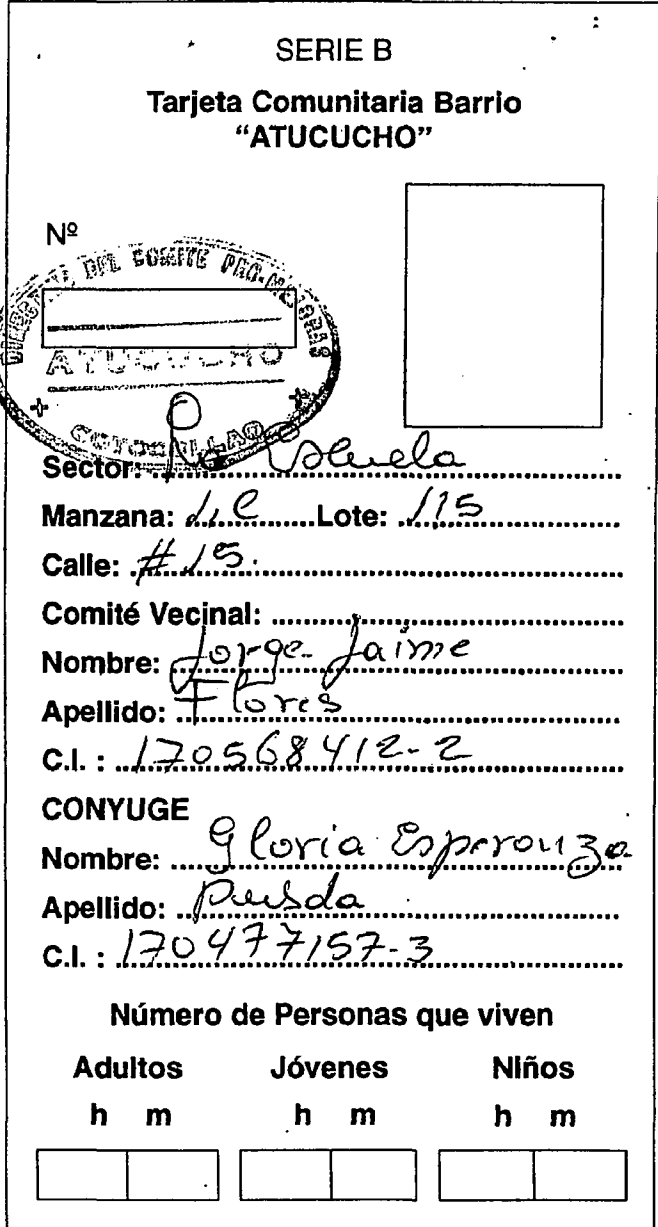 SERIE B
Tarjeta Comunitaria Barrio
“ATUCUCHO”
Nº
DIRECTIVA DEL COMITE PRO-MEJORAS
ATUCUCHO
COTOCOLLAO
Sector:
Manzana: Lote: 115
Calle: # 15.
Comité Vecinal:
Nombre: Jorge Jaime
Apellido: Flores
C.I. : 170568412-2
CONYUGE
Nombre: Gloria Esperanza
Apellido:
C.I. : 170477157-3
Número de Personas que viven
Adultos Jóvenes Niños
h m h m h m